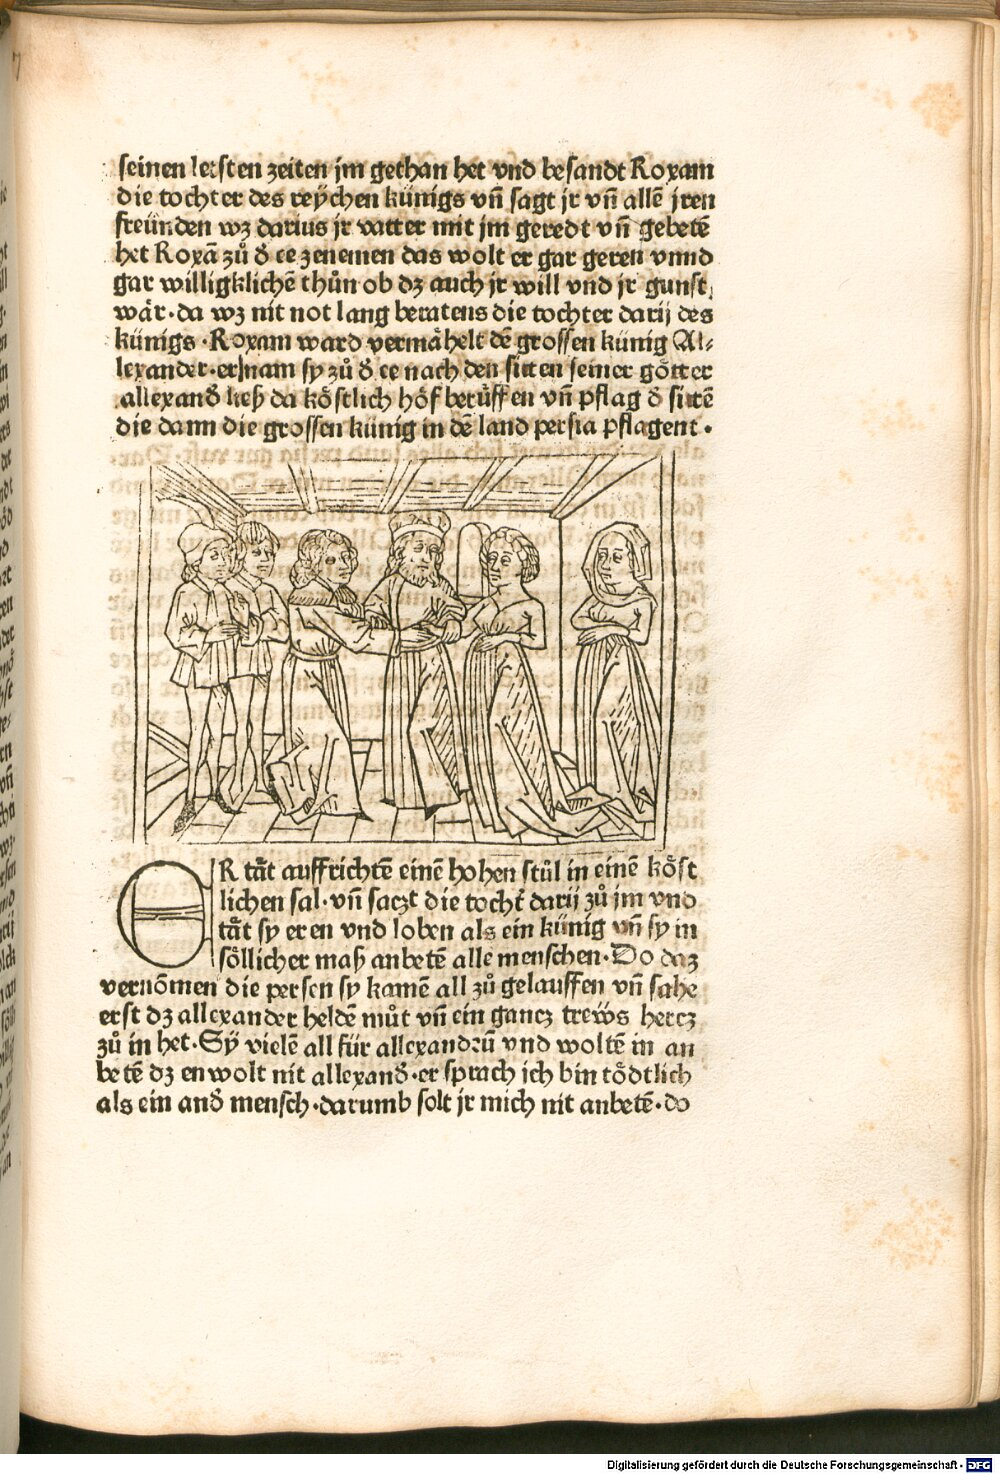 seinen letsten zeiten jm gethan het vnd besandt Roxam
die tochter des reÿchen künigs vn̄ sagt jr vn̄ allē jren
freünden wz darius jr vatter mit jm geredt vn̄ gebetē
het Roxā zů d̄ ee zenemen das wolt er gar geren vnnd
gar willigklichē thůn ob dz auch jr will vnd jr gunst
wår·da wz nit not lang beratens die tochter darij des
künigs·Roxam ward vermåhelt dē grossen künig Al⸗
lexander·er nam sy zů d̄ ee nach den sitten seiner gȫtter
allexand̄ ließ da köstlich höf berůffen vn̄ pflag d̄ sitē
die dann die grossen künig in dē land persia pflagent·
ER tåt auffrichtē einē hohen stůl in einē köst
lichen sal·vn̄ saczt die tocht̄ darij zů jm vnd
tåt sy eren vnd loben als ein künig vn̄ sy in
söllicher maß anbetē alle menschen·Do daz
vernōmen die persen sy kamē all zů gelauffen vn̄ sahē
erst dz allexander heldē můt vn̄ ein gancz trews hercz
zů in het·Sÿ vielē all für allexandrū vnd woltē in an
betē dz enwolt nit allexand̄·er sprach ich bin tödtlich
als ein and̄ mensch·darumb solt jr mich nit anbetē·do
Digitalisierung gefördert durch die Deutsche Forschungsgemeinschaft - DFG